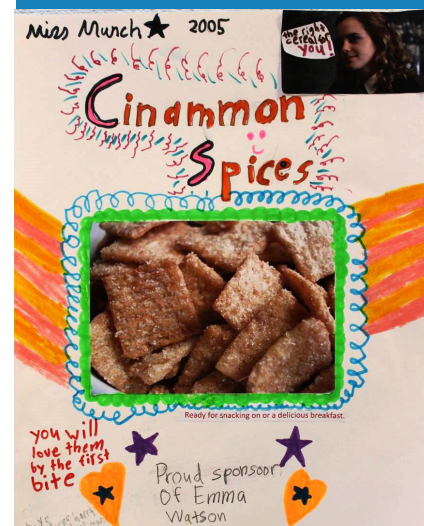 Miss Munch 2005
the right
cereal for
you!
Cinammon
Spices
Ready for snacking on or a delicious breakfast.
you will
love them
by the first
bite
Proud sponsoor
Of Emma
Watson